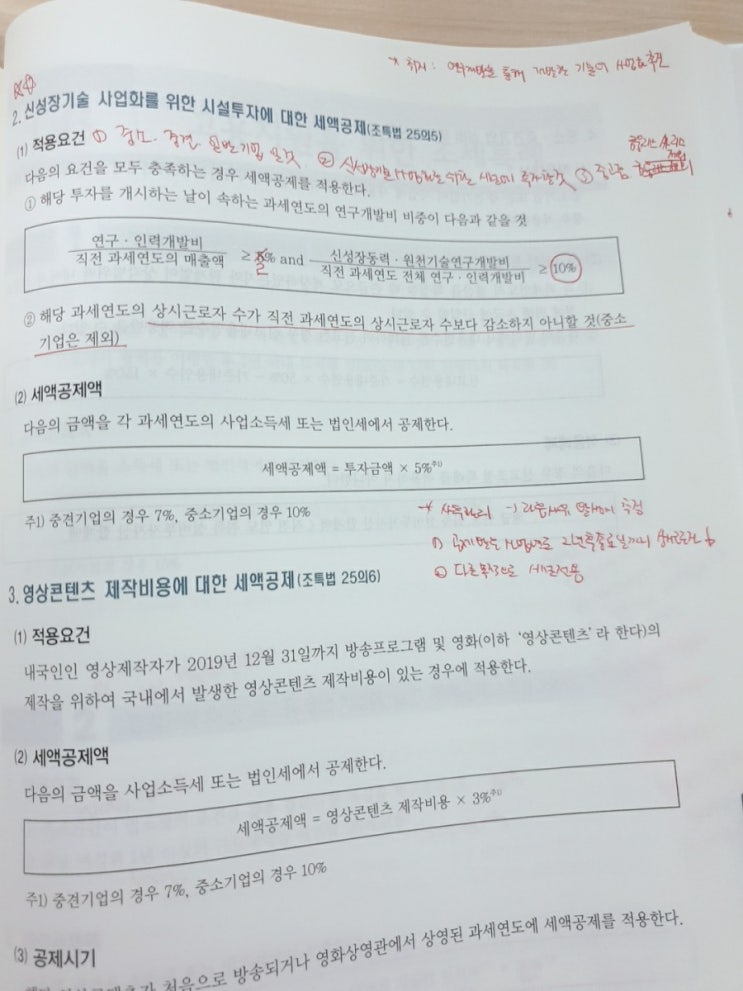 * 취지 : 연구개발을 통해 개발한 기술의 사업화 촉진
2. 신성장기술 사업화를 위한 시설투자에 대한 세액공제(조특법 25의5)
(1) 적용요건 ① 중소, 중견, 일반기업 일 것
다음의 요건을 모두 충족하는 경우 세액공제를 적용한다.
① 해당 투자를 개시하는 날이 속하는 과세연도의 연구개발비 비중이 다음과 같을 것
연구·인력개발비 / 직전 과세연도의 매출액 ≥ 2% and 신성장동력·원천기술연구개발비 / 직전 과세연도 전체 연구·인력개발비 ≥ 10%
② 해당 과세연도의 상시근로자 수가 직전 과세연도의 상시근로자 수보다 감소하지 아니할 것(중소
기업은 제외)
(2) 세액공제액
다음의 금액을 각 과세연도의 사업소득세 또는 법인세에서 공제한다.
세액공제액 = 투자금액 × 5%주1)
주1) 중견기업의 경우 7%, 중소기업의 경우 10%
② 다른목적으로 전용
3. 영상콘텐츠 제작비용에 대한 세액공제(조특법 25의6)
(1) 적용요건
내국인인 영상제작자가 2019년 12월 31일까지 방송프로그램 및 영화(이하 ‘영상콘텐츠’라 한다)의
제작을 위하여 국내에서 발생한 영상콘텐츠 제작비용이 있는 경우에 적용한다.
(2) 세액공제액
다음의 금액을 사업소득세 또는 법인세에서 공제한다.
세액공제액 = 영상콘텐츠 제작비용 × 3%주1)
주1) 중견기업의 경우 7%, 중소기업의 경우 10%
(3) 공제시기
처음으로 방송되거나 영화상영관에서 상영된 과세연도에 세액공제를 적용한다.